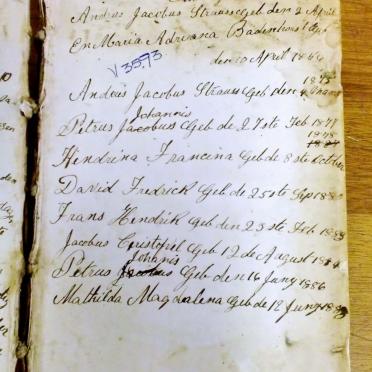 Andries Jacobus Strauss geb den 2 April
En Maria Adriana Badenhorst Geb
den 10 April 1864
V3573
1875
Andries Jacobus Strauss Geb den
Johannis
Petrus Jacobuss Geb de 27ste Feb 1877
1878
Hendrina Francina Geb de 8ste October
David Fredrick Geb de 25ste Sep
Frans Hendrik Geb den 23ste Feb
Jacobus Cristofel Geb 12 de August
Johanis
Petrus Geb den 16 Juny 1886
Mathilda Magdalena Geb de 12 Juny